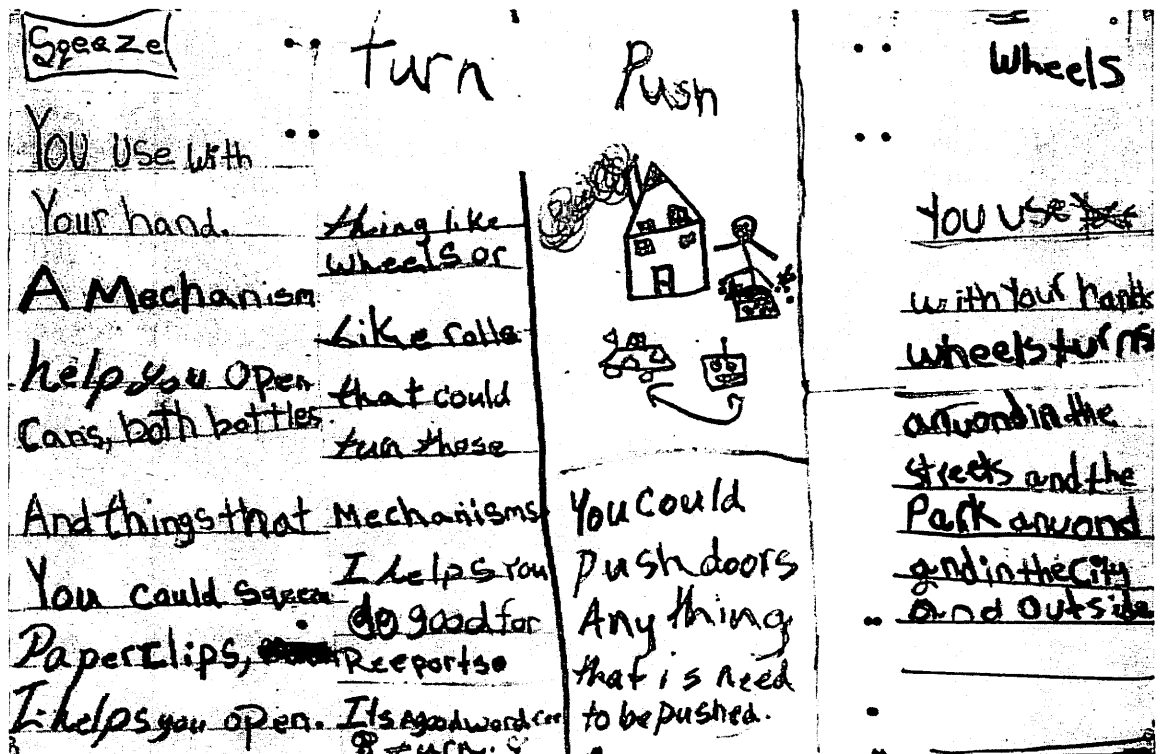 Sqeaze
You use with
Your hand.
A Mechanism
help you open
Cans, both bottles
And things that
You could sqeeze
Paperclips,
I helps you open.
Turn
thing like
wheels or
Like rolls
that could
turn those
Mechanisms
I helps you
do good for
Reeportso
Its a good word
Push
You could
Push doors
Any thing
that is need
to be pushed.
Wheels
You use
with Your hands
wheels turns
aruond in the
streets and the
Park aruond
and in the City
and outside